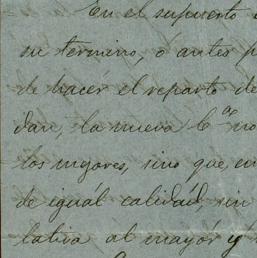 En el supuesto
su termino, ó antes p
de hacér el reparto de
dan, la nueva C.ª no
los mejores, sino que en
de iguál calidád, sin
lativa al mayór y